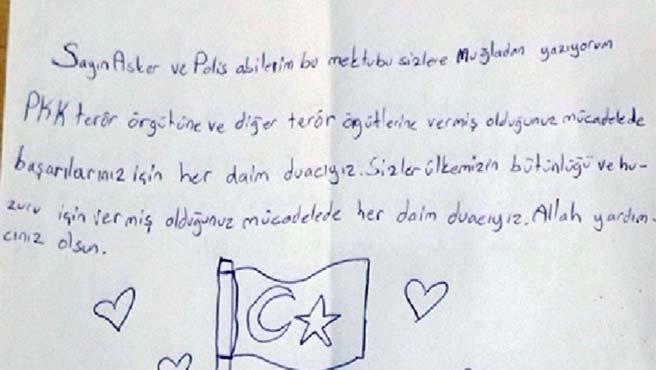 Sayın Asker ve Polis abilerim bu mektubu sizlere Muğladan yazıyorum
PKK terör örgütüne ve diğer terör ögütlerine vermiş olduğunuz mücadelede
başarılarınız için her daim duacıyız. Sizler ülkemizin bütünlüğü ve hu-
zuru için vermiş olduğunuz mücadelede her daim duacıyız. Allah yardım-
cınız olsun.